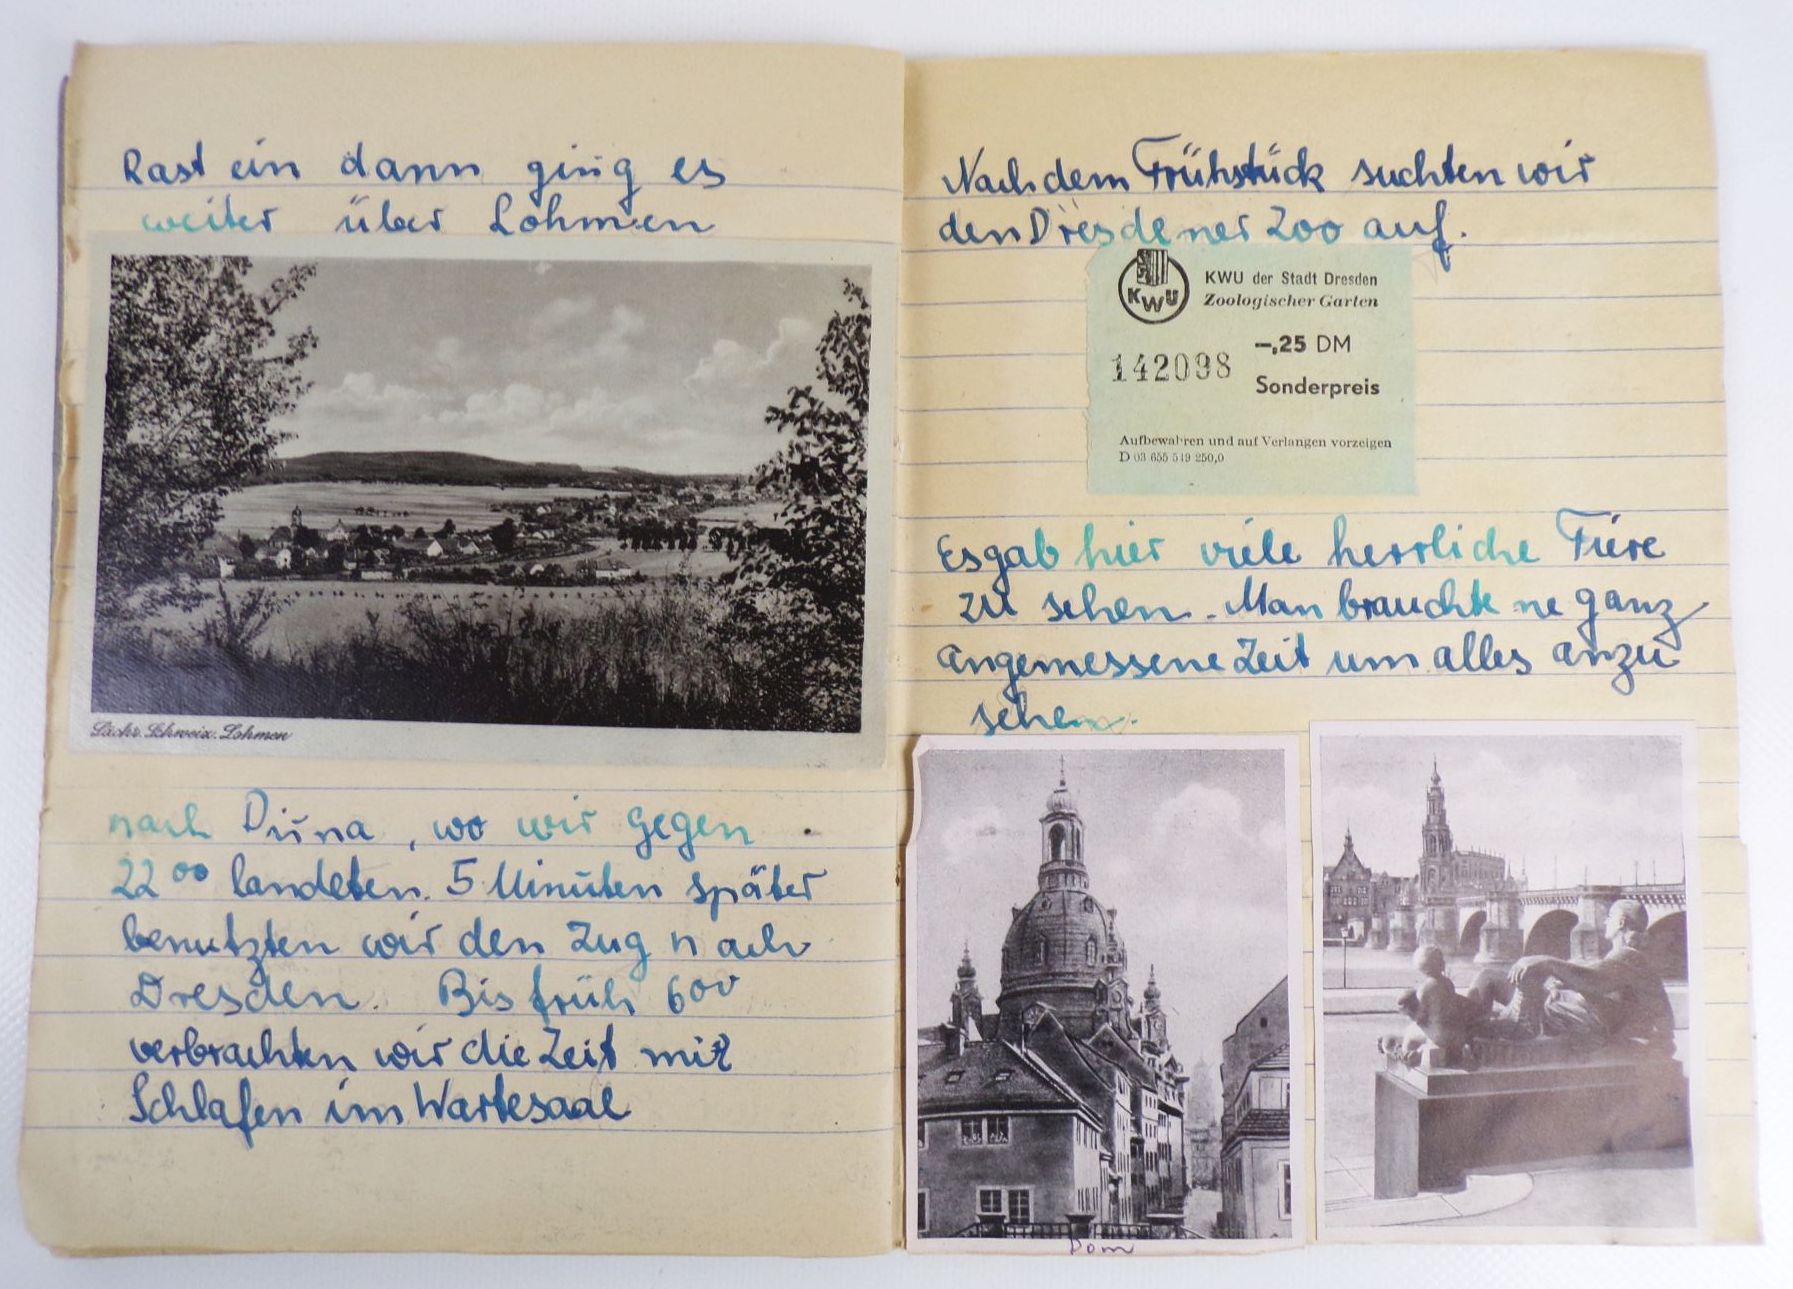 Rast ein dann ging es
weiter über Lohmen
Sächs. Schweiz. Lohmen
nach Pirna, wo wir gegen
22 00 landeten. 5 Minuten später
benutzten wir den Zug nach
Dresden. Bis früh 600
verbrachten wir die Zeit mit
Schlafen im Wartesaal
Nach dem Frühstück suchten wir
den Dresdener Zoo auf.
KWU
KWU der Stadt Dresden
Zoologischer Garten
-,25 DM
142098
Sonderpreis
Aufbewahren und auf Verlangen vorzeigen
D 03 655 549 250,0
Es gab hier viele herrliche Tiere
zu sehen. Man brauchte ne ganz
angemessene Zeit um alles anzu
sehen.
Dom